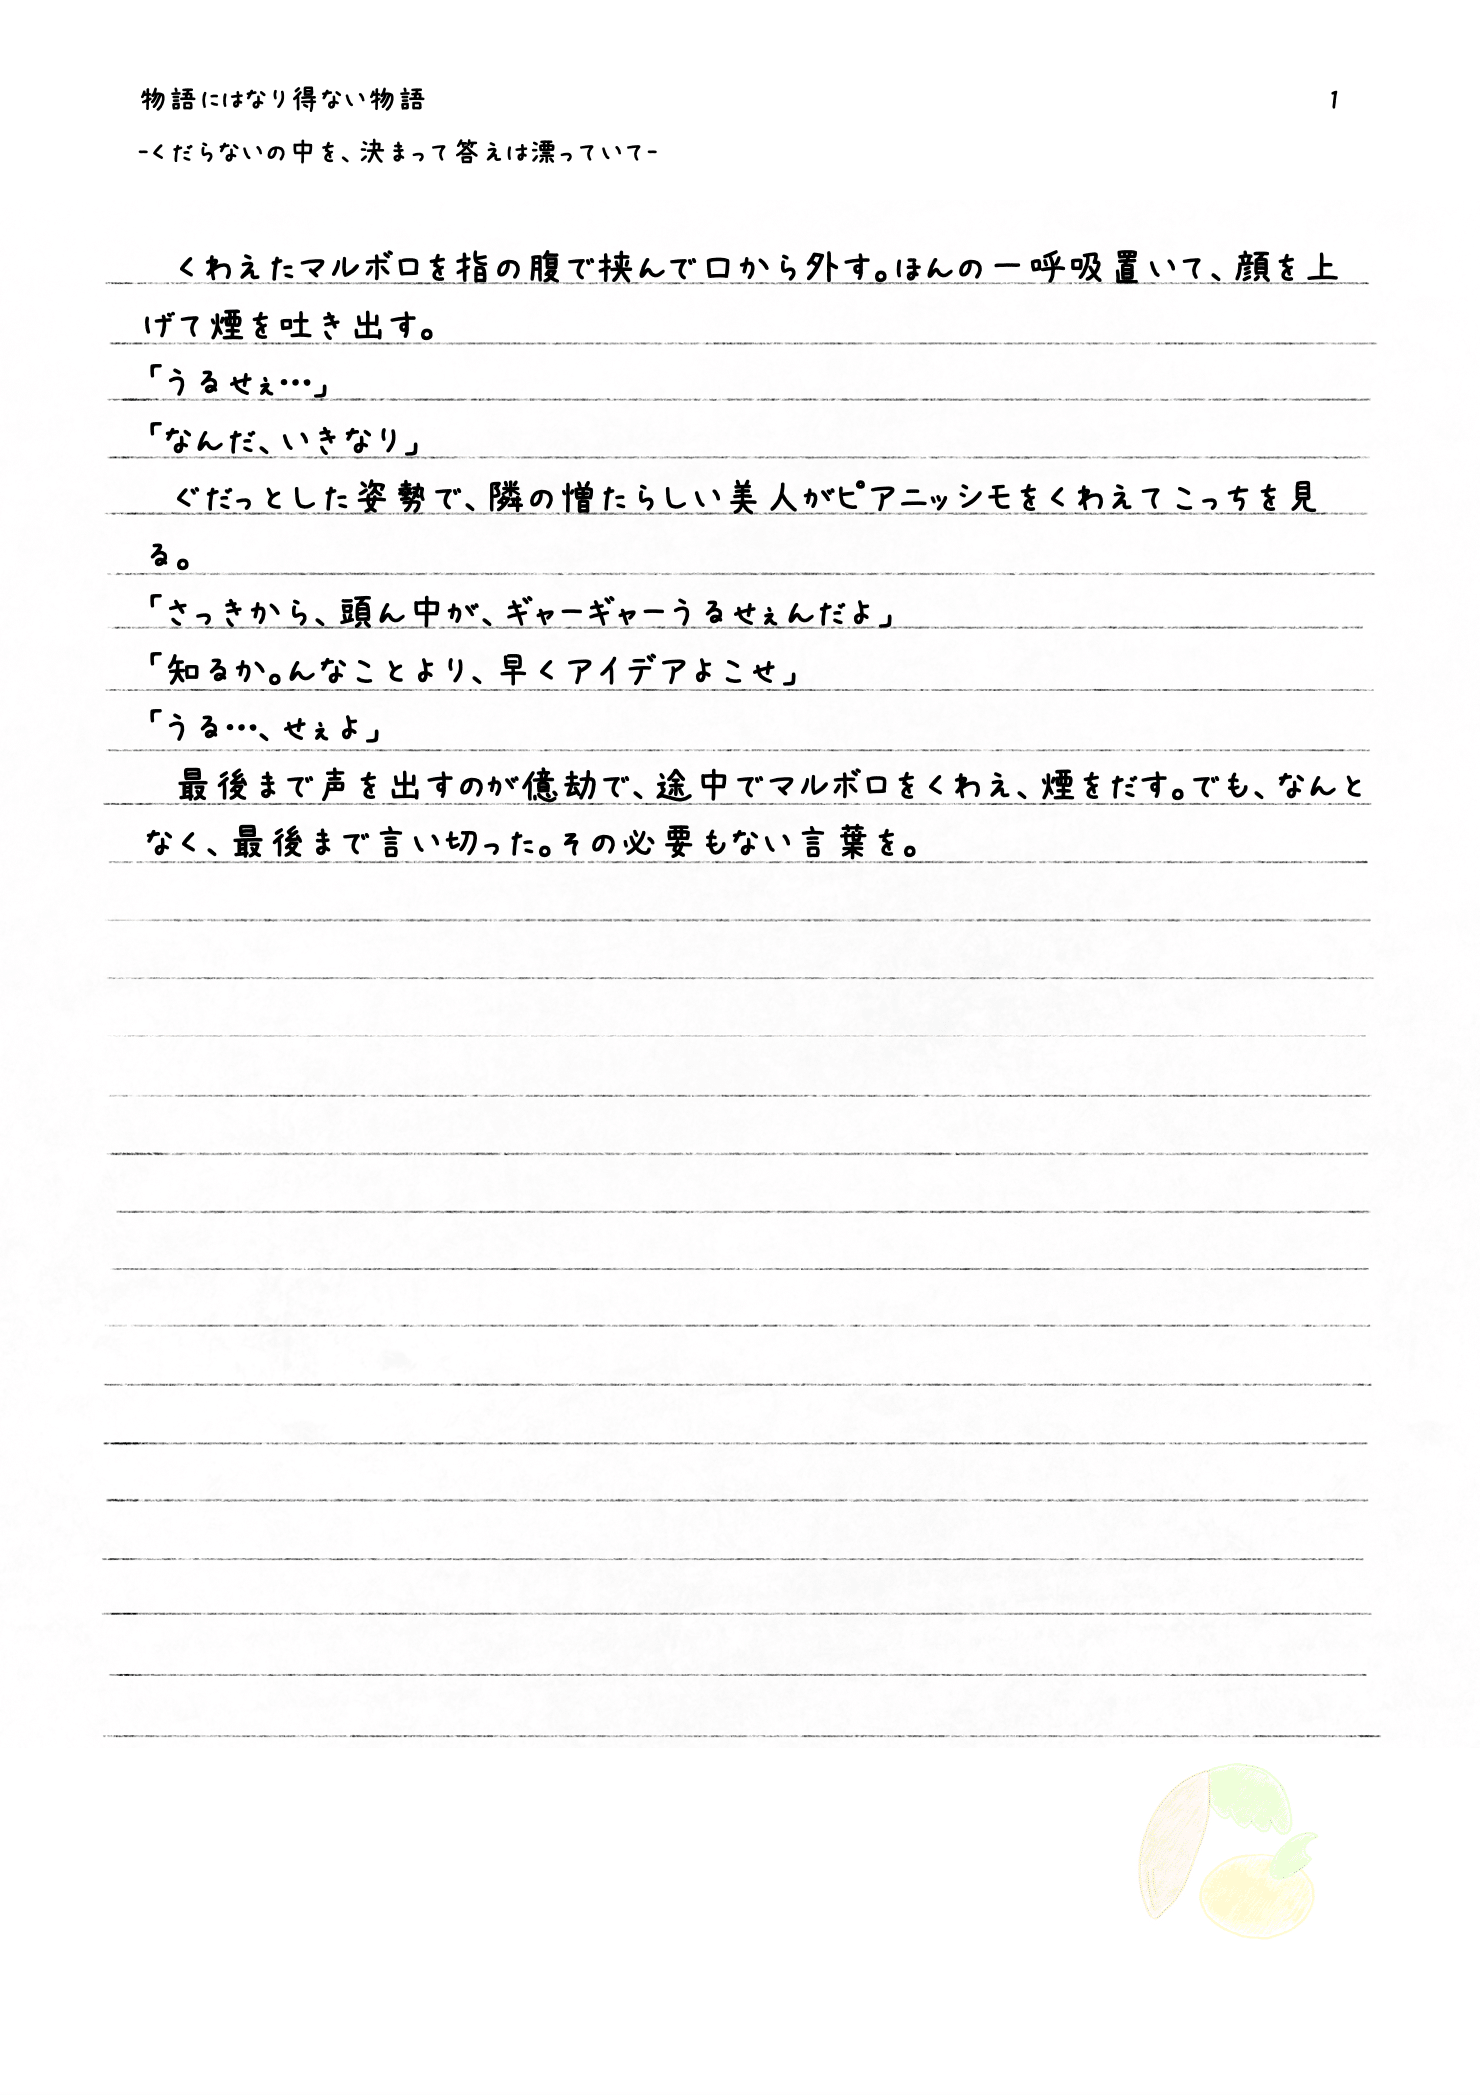 物語にはなり得ない物語
1
-くだらないの中を、決まって答えは漂っていて-
　くわえたマルボロを指の腹で挟んで口から外す。ほんの一呼吸置いて、顔を上
げて煙を吐き出す。
「うるせぇ…」
「なんだ、いきなり」
　ぐだっとした姿勢で、隣の憎たらしい美人がピアニッシモをくわえてこっちを見
る。
「さっきから、頭ん中が、ギャーギャーうるせぇんだよ」
「知るか。んなことより、早くアイデアよこせ」
「うる…、せぇよ」
　最後まで声を出すのが億劫で、途中でマルボロをくわえ、煙をだす。でも、なんと
なく、最後まで言い切った。その必要もない言葉を。